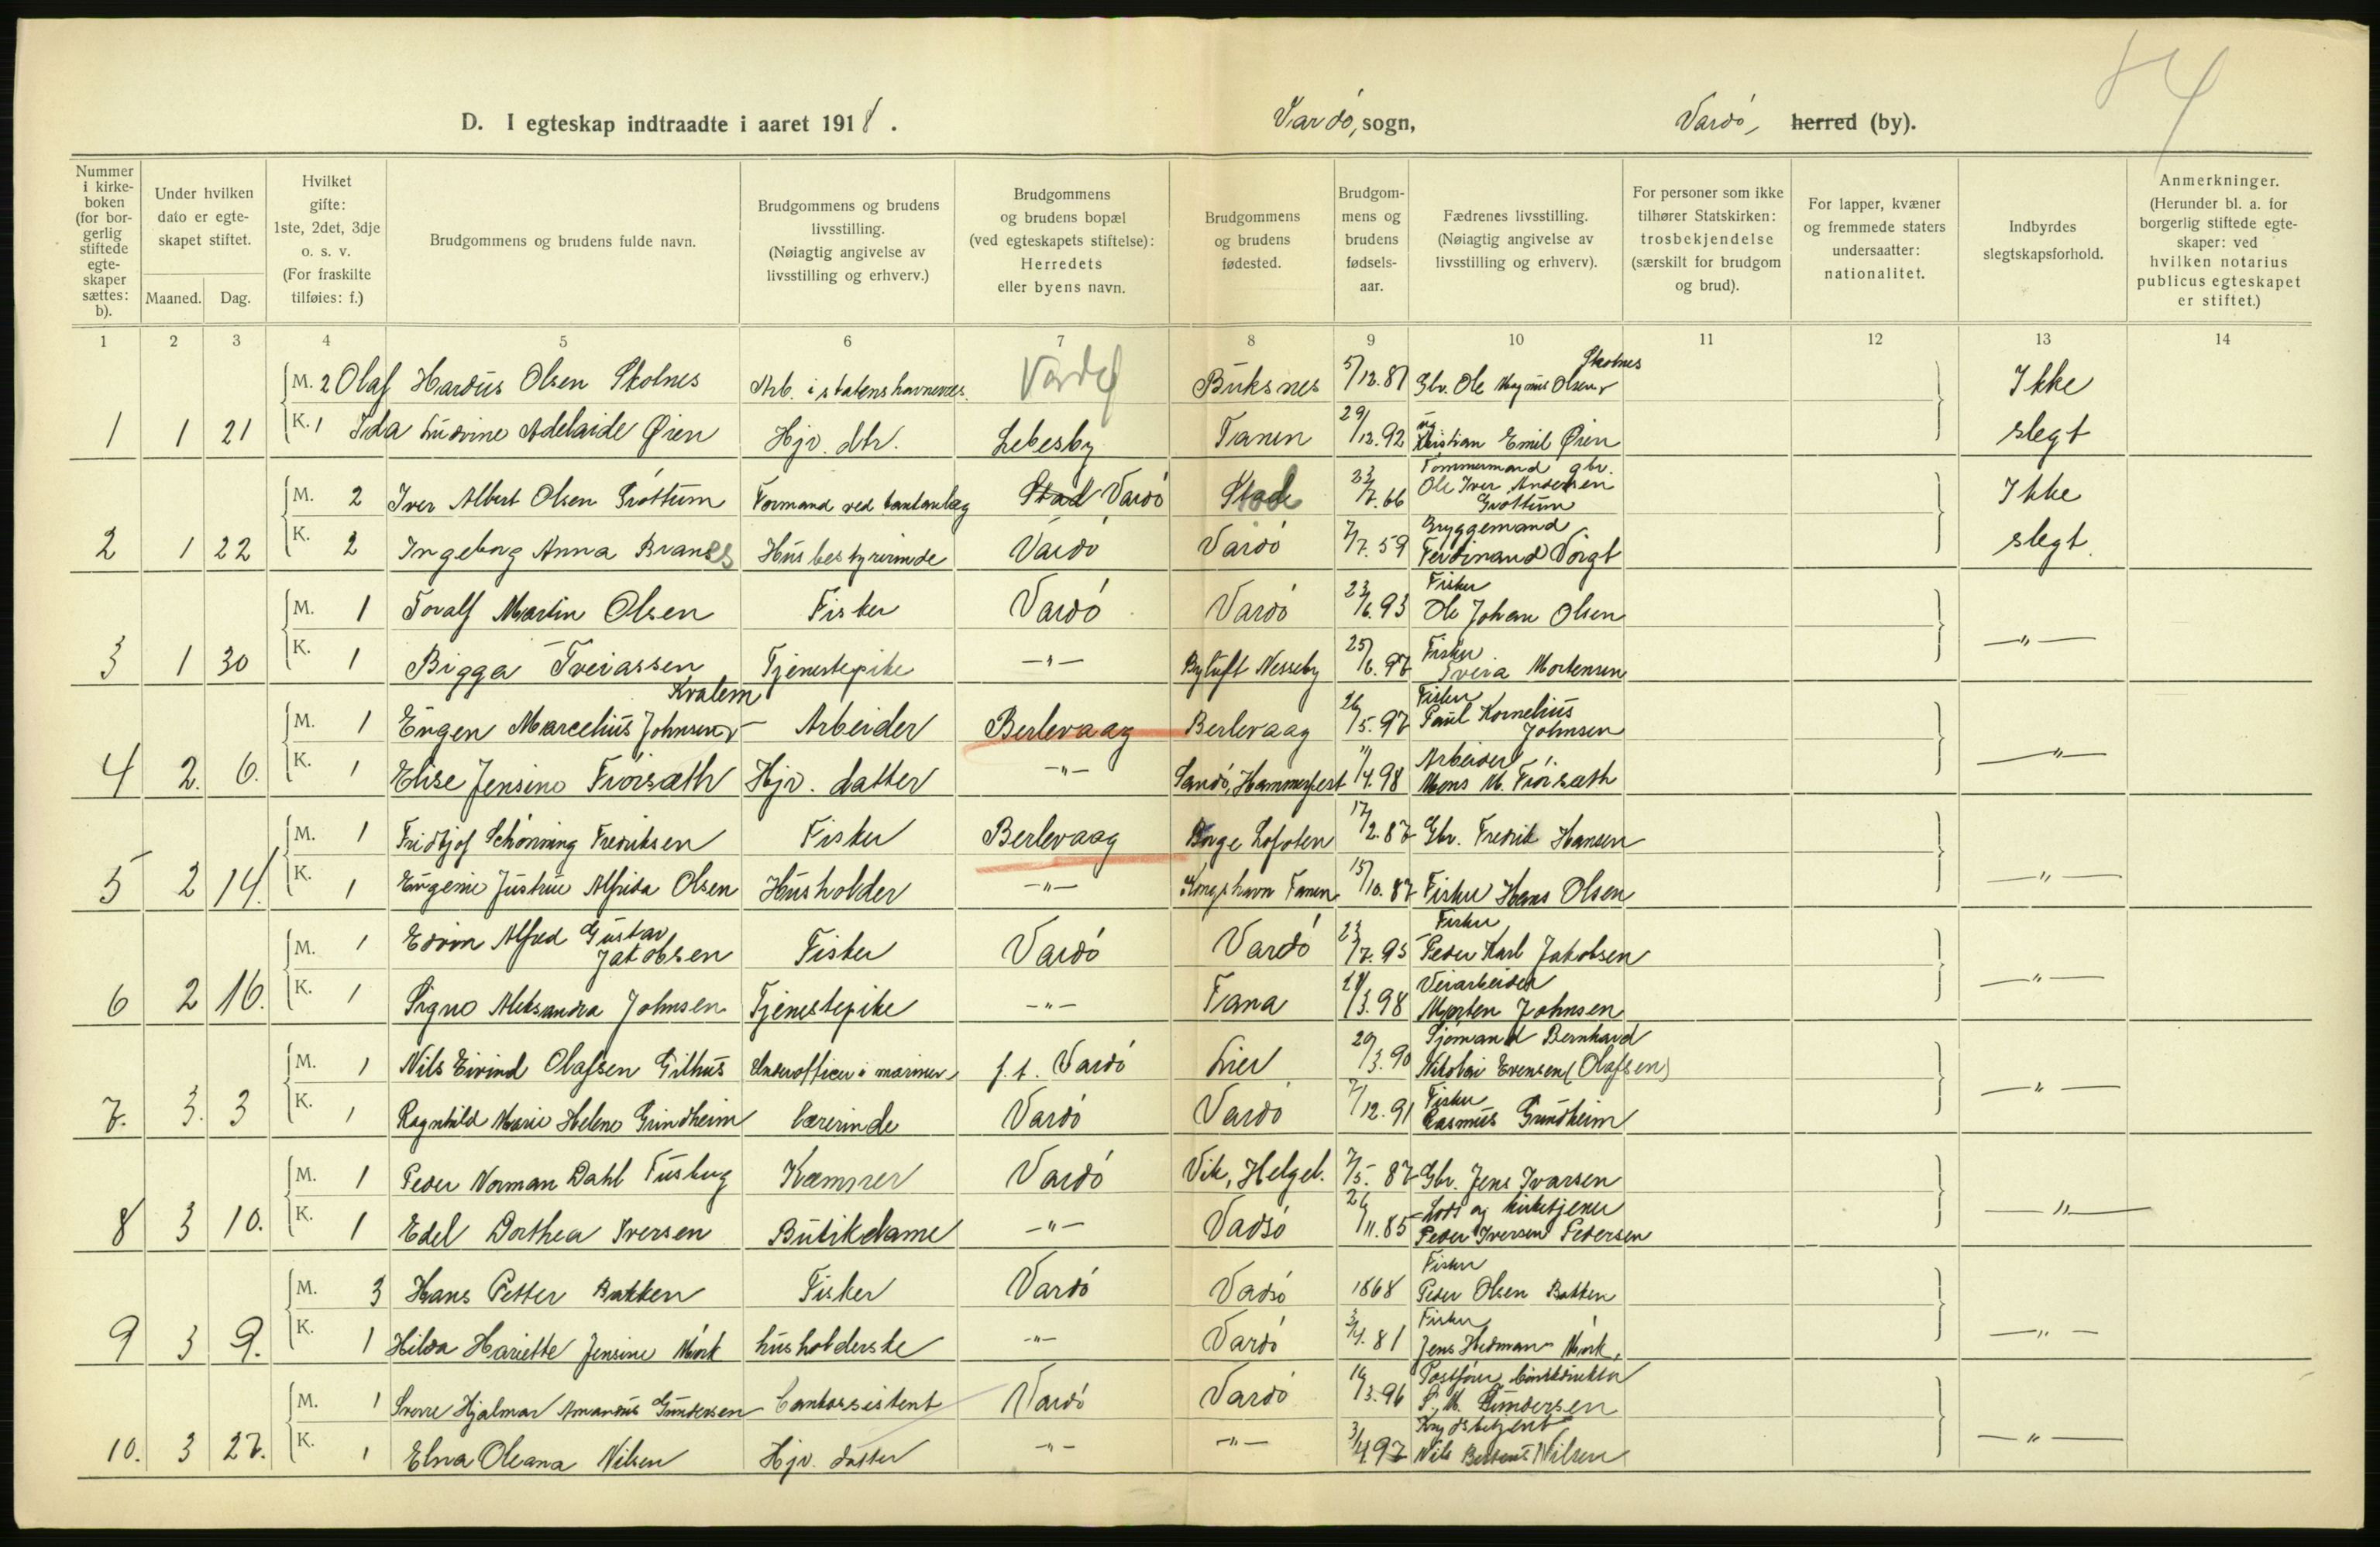 D. I egteskap indtraadte i aaret 1918.
Vardö, sogn,
Vardö, herred (by).
Nummer i kirkeboken (for borgerlig stiftede egteskaper sættes: b).
Under hvilken dato er egteskapet stiftet.
Maaned. Dag.
Hvilket gifte: 1ste, 2det, 3dje o. s. v. (For fraskilte tilføies: f.)
Brudgommens og brudens fulde navn.
Brudgommens og brudens livsstilling. (Nøiagtig angivelse av livsstilling og erhverv.)
Brudgommens og brudens bopæl (ved egteskapets stiftelse): Herredets eller byens navn.
Brudgommens og brudens fødested.
Brudgommens og brudens fødselsaar.
Fædrenes livsstilling. (Nøiagtig angivelse av livsstilling og erhverv).
For personer som ikke tilhører Statskirken: trosbekjendelse (særskilt for brudgom og brud).
For lapper, kvæner og fremmede staters undersaatter: nationalitet.
Indbyrdes slegtskapsforhold.
Anmerkninger. (Herunder bl. a. for borgerlig stiftede egteskaper: ved hvilken notarius publicus egteskapet er stiftet.)
1 2 3 4 5 6 7 8 9 10 11 12 13 14
M. 2 Olaf Hardus Olsen Skolnes Arb. i statens havnevæs. Vardö Buksnes 5/12.87 Gbr. Ole Magnus Olsen Skolnes Ikke
1 1 21 K. 1 Ida Ludvine Adelaide Øien Hjv. dtr. Lebesby Tanen 29/12.92 Kristian Emil Øien slegt
M. 2 Iver Albert Olsen Gróttum Formand ved Stad Vardö Stod 23/7.66 Tömmermand gbr. Ole Iver Andersen Gróttum Ikke
2 1 22 K. 2 Ingeborg Anna Branes Husbestyrerinde Vardö Vardö 7/7.59 Bryggemand Ferdinand Voigt slegt.
M. 1 Toralf Martin Olsen Fisker Vardö Vardö 23/6.93 Fisker Ole Johan Olsen
3 1 30 K. 1 Bigga Tveiassen Tjenestepike —"— Byluft Nesseby 25/6.97 Fisker Tveia Mortensen —"—
M. 1 Eugen Marcelius Johnsen Kvalem Arbeider Berlevaag Berlevaag 26/5.97 Fisker Paul Kornelius Johnsen
4 2. 6. K. 1 Elise Jensine Friósæth Hjv. datter —"— Sandö, Hammerfest 11/4.98 Arbeider Mons M. Friósæth —"—
M. 1 Fridtjof Schönning Fredriksen Fisker Berlevaag Borge Lofoten 17/2.87 Gbr. Fredrik Hansen
5 2 14. K. 1 Eugenie Justine Alfrida Olsen Husholder —"— Kongshavn Tanen 15/10.87 Fisker Hans Olsen —"—
M. 1 Edvin Alfred Gustav Jakobsen Fisker Vardö Vardö 23/7.95 Fisker Peder Karl Jakobsen
6 2 16. K. 1 Signe Aleksandra Johnsen Tjenestepike —"— Tana 21/3.98 Veiarbeider Morten Johnsen —"—
M. 1 Nils Eivind Olafsen Gilhus Underofficer i marinen f.t. Vardö Lier 29/3.90 Sjömand Bernhard Nikolai Evensen (Olafsen)
7. 3. 3 K. 1 Ragnhild Marie Helene Grindheim Lærerinde Vardö Vardö 7/12.91 Fisker Rasmus Grindheim —"—
M. 1 Peder Norman Dahl Kæmner Vardö Vik, Helgel. 7/5.87 Gbr. Jens Ivarsen
8 3 10. K. 1 Edel Dorthea Iversen Butikdame —"— Vadsö 26/11.85 Lods og kirketjener Peder Iversen Pedersen —"—
M. 3 Hans Petter Bakken Fisker Vardö Vadsö 1868 Fisker Peder Olsen Bakken
9 3 9. K. 1 Hilda Hariette Jensine Mörk husholderske —"— Vardö 3/4.81 Fisker Jens Hedman Mörk. —"—
M. 1 Sverre Hjalmar Amandus Gundersen Vardö Vardö 16/3.96 Gundersen
10. 3 27. K. 1 Elna Oleana Nilsen Hjv. datter —"— —"— 3/4.97 Nilsen —"—